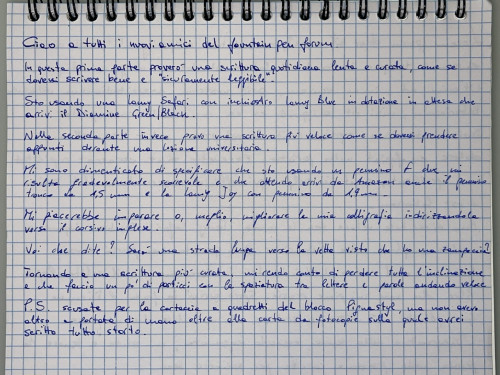 Ciao a tutti i nuovi amici del fountain pen forum.
In questa prima parte proverò una scrittura quotidiana lenta e curata, come se
dovessi scrivere bene e "sicuramente leggibile".
Sto usando una Lamy Safari con inchiostro Lamy Blue in dotazione in attesa che
arrivi il Diamine Green/Black.
Nella seconda parte invece provo una scrittura più veloce come se dovessi prendere
appunti durante una lezione universitaria.
Mi sono dimenticato di specificare che sto usando un pennino F che mi
risulta gradevolmente scorrevole e che attendo arrivi da Amazon anche il pennino
tronco da 1,5 mm e la Lamy Joy con pennino da 1,9 mm.
Mi piacerebbe imparare o, meglio, migliorare la mia calligrafia indirizzandola
verso il corsivo inglese.
Voi che dite? Sarà una strada lunga verso la vetta visto che ho una zampaccia?
Tornando a una scrittura più curata, mi rendo conto di perdere tutta l'inclinazione
e che faccio un po' di pasticci con la spaziatura tra lettere e parole andando veloce.
P.S. scusate per la cartaccia a quadretti del blocco Pigna Styl, ma non avevo
altro a portata di mano oltre alla carta da fotocopie sulla quale avrei
scritto tutto storto.